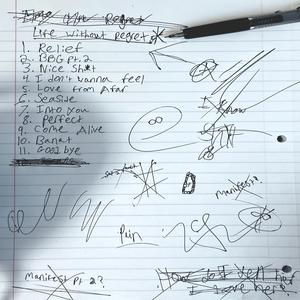 Life Without Regret
1. Relief
2. BBG Pt. 2
3. Nice Sh*t
4. I don't wanna feel
5. Love from Afar
6. Seaside
7. Into you
8. Perfect
9. Come Alive
10. Banat
11. Goodbye
I know
Manifest?
Pain
Manifest Pt 2?
How do I tell her
I love her?